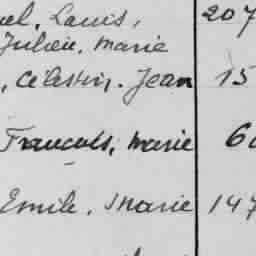 uel, Louis, 207
Julien, Marie
, Célestin, Jean 15
François, Marie 6
Emile, Marie 147